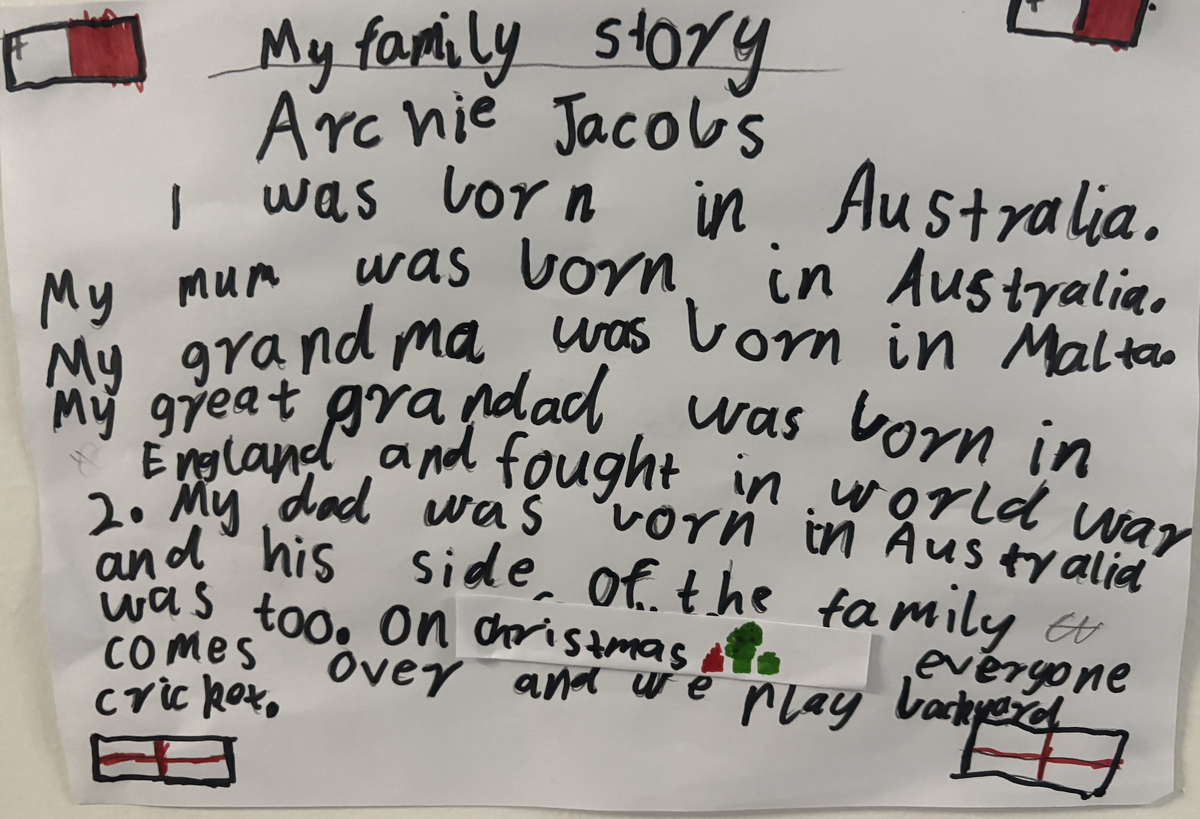 My family story
Archie Jacobs
I was born in Australia.
My mum was born in Australia.
My grandma was born in Malta.
My great grandad was born in
England and fought in world war
2. My dad was born in Australia
and his side of the family
was too. On christmas everyone
comes over and we play backyard
cricket.